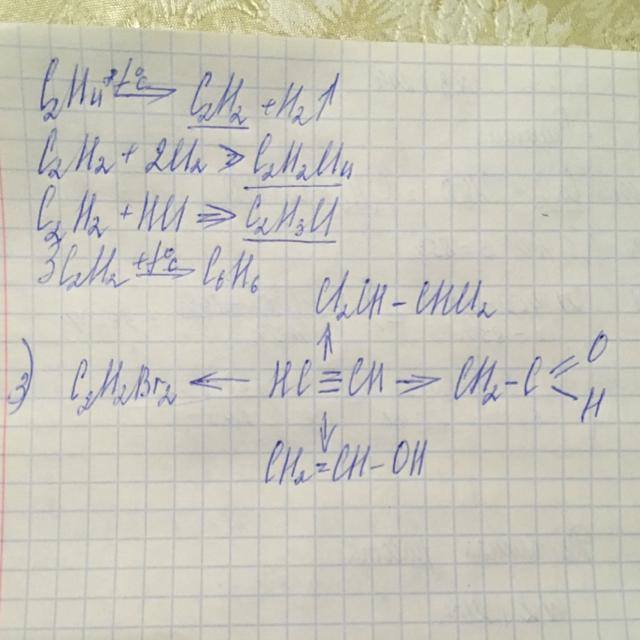 C₂H₄ +t°C → C₂H₂ + H₂↑
C₂H₂ + 2Cl₂ → C₂H₂Cl₄
C₂H₂ + HCl ⇒ C₂H₃Cl
3C₂H₂ +t°C → C₆H₆
Cl₂CH – CHCl₂
↑
3) C₂H₂Br₂ ← HC ≡ CH → CH₂ – C =O –H
↓
CH₂ = CH – OH